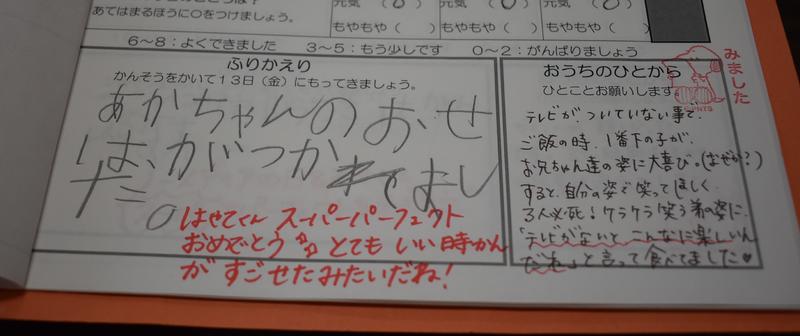 元気 (○) 元気 (○) 元気 (○)
あてはまるほうに○をつけましょう。
もやもや ( ) もやもや ( ) もやもや ( )
6～8：よくできました 3～5：もう少しです 0～2：がんばりましょう
ふりかえり
かんそうをかいて13日（金）にもってきましょう。
あかちゃんのおせ
は、がつか れてまし
た。
はやてくん スーパーパーフェクト
おめでとう とても いい時かん
が すごせたみたいだね！
おうちのひとから
ひとことお願いします
みました
テレビが、ついていない事で、
ご飯の時、1番下の子が、
お兄ちゃん達の姿に大喜び。(なぜか？)
すると、自分の姿で笑ってほしく、
3人必死！ケラケラ笑う弟の姿に、
「テレビがないと、こんなに楽しいん
だね」と言って食べてました♥